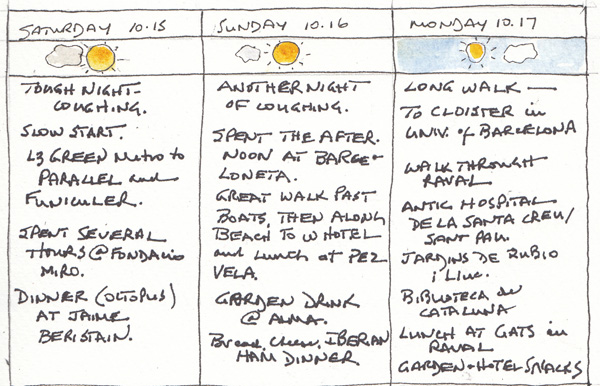 SATURDAY 10.15
TOUGH NIGHT-
COUGHING.
SLOW START.
L3 GREEN Metro to
PARALLEL and
FUNICULER.
SPENT SEVERAL
HOURS @ FONDACIO
MIRO.
DINNER (OCTOPUS)
AT JAIME
BERISTAIN.
SUNDAY 10.16
ANOTHER NIGHT
OF COUGHING.
SPENT THE AFTER-
NOON AT BARCE-
LONETA.
GREAT WALK PAST
BOATS, THEN ALONG
BEACH TO W HOTEL
and LUNCH at PEZ
VELA.
GARDEN DRINK
@ ALMA.
Bread, Cheese, IBERIAN
HAM DINNER
MONDAY 10.17
LONG WALK —
TO CLOISTER in
UNIV. of BARCELONA
WALK THROUGH
RAVAL
ANTIC HOSPITAL
DE LA SANTA CREU/
SANT PAU.
JARDINS DE RUBIO
i Lluc.
BIBLIOTECA de
CATALUNA
LUNCH AT GATS in
RAVAL
GARDEN - HOTEL SNACKS